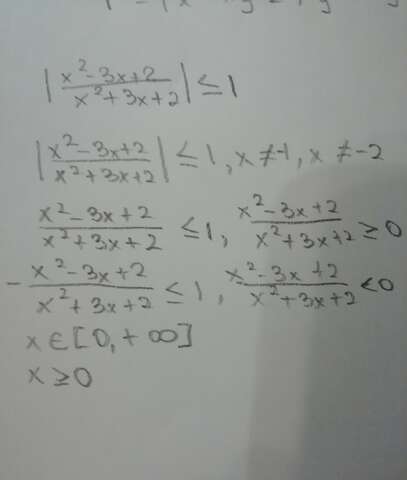 |x²-3x+2 / x²+3x+2| ≤ 1
|x²-3x+2 / x²+3x+2| ≤ 1, x ≠ -1, x ≠ -2
x²-3x+2 / x²+3x+2 ≤ 1, x²-3x+2 / x²+3x+2 ≥ 0
- x²-3x+2 / x²+3x+2 ≤ 1, x²-3x+2 / x²+3x+2 < 0
x ∈ [0, +∞]
x ≥ 0